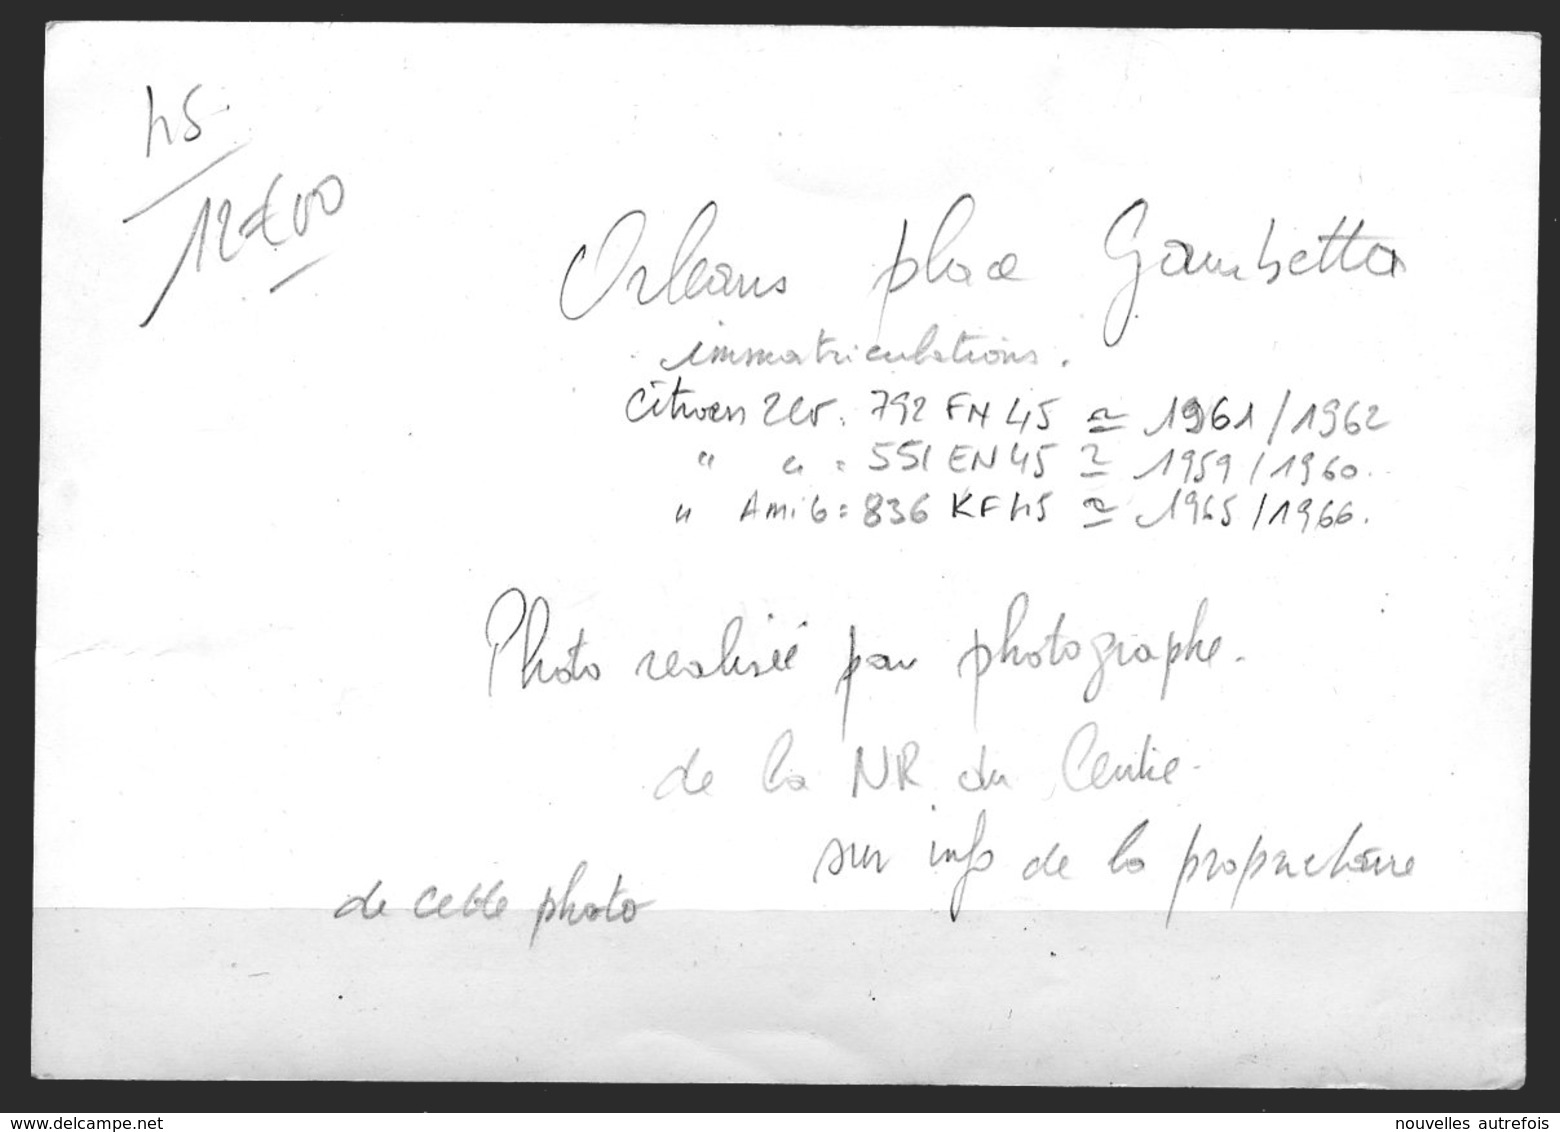 45
12€00
Orleans place Gambetta
immatriculations.
Citroen 2cv: 792 FH 45 ≃ 1961/1962
" " = 551 EN 45 ≃ 1959/1960.
" Ami 6 = 836 KF 45 ≃ 1965/1966.
Photo realisée par photographe.
de la NR du Centre.
sur info de la propriétaire
de cette photo
www.delcampe.net
nouvelles autrefois